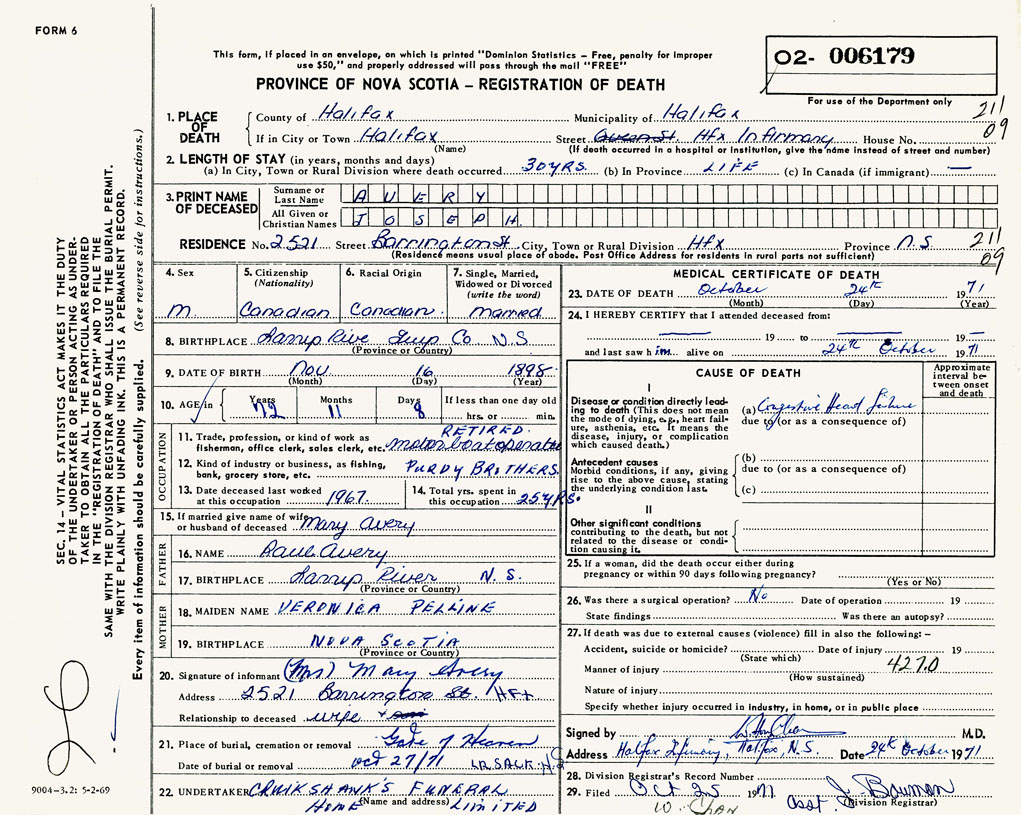 FORM 6
This form, if placed in an envelope, on which is printed "Dominion Statistics – Free, penalty for improper
use $50," and properly addressed will pass through the mail "FREE"
PROVINCE OF NOVA SCOTIA – REGISTRATION OF DEATH
O2- 006179
For use of the Department only
211
09
1. PLACE OF DEATH
County of Halifax Municipality of Halifax
If in City or Town Halifax Street Hfx Infirmary House No.
(Name) (If death occurred in a hospital or institution, give the name instead of street and number)
2. LENGTH OF STAY (in years, months and days)
(a) In City, Town or Rural Division where death occurred 30 YRS. (b) In Province LIFE (c) In Canada (if immigrant) —
3. PRINT NAME OF DECEASED
Surname or Last Name AVERY
All Given or Christian Names JOSEPH
RESIDENCE No. 2521 Street Barrington St. City, Town or Rural Division Hfx Province N.S.
211
09
(Residence means usual place of abode. Post Office Address for residents in rural parts not sufficient)
4. Sex M.
5. Citizenship (Nationality) Canadian
6. Racial Origin Canadian
7. Single, Married, Widowed or Divorced (write the word) married
8. BIRTHPLACE Larryp Rive Guys Co N.S
(Province or Country)
9. DATE OF BIRTH Nov. 16 1898
(Month) (Day) (Year)
10. AGE in Years 72 Months 11 Days 8 If less than one day old
hrs. or min.
OCCUPATION
11. Trade, profession, or kind of work as fisherman, office clerk, sales clerk, etc. RETIRED. motor boat operator
12. Kind of industry or business, as fishing, bank, grocery store, etc. PURDY BROTHERS.
13. Date deceased last worked at this occupation 1967.
14. Total yrs. spent in this occupation 25 YRS.
15. If married give name of wife or husband of deceased Mary Avery
FATHER
16. NAME Paul Avery
17. BIRTHPLACE Larryp River N.S.
(Province or Country)
MOTHER
18. MAIDEN NAME VERONICA PELLINE
19. BIRTHPLACE NOVA SCOTIA
(Province or Country)
20. Signature of informant (Mrs) Mary Avery
Address 2521 Barrington St. Hfx
Relationship to deceased wife
21. Place of burial, cremation or removal Gate of Heaven
Date of burial or removal Oct 27/71 LR. SACK. H.S
22. UNDERTAKER CRUIKSHANK'S FUNERAL
HOME (Name and address) LIMITED
MEDICAL CERTIFICATE OF DEATH
23. DATE OF DEATH October 24th 1971
(Month) (Day) (Year)
24. I HEREBY CERTIFY that I attended deceased from:
— 19 — to — 19 —
and last saw him alive on 24th October 1971
CAUSE OF DEATH
Approximate interval between onset and death
I
Disease or condition directly leading to death (This does not mean the mode of dying, e.g., heart failure, asthenia, etc. It means the disease, injury, or complication which caused death.)
(a) Congestive Heart Failure
due to (or as a consequence of)
Antecedent causes
Morbid conditions, if any, giving rise to the above cause, stating the underlying condition last.
(b)
due to (or as a consequence of)
(c)
II
Other significant conditions
contributing to the death, but not related to the disease or condition causing it.
25. If a woman, did the death occur either during
pregnancy or within 90 days following pregnancy?
(Yes or No)
26. Was there a surgical operation? No Date of operation 19
State findings Was there an autopsy?
27. If death was due to external causes (violence) fill in also the following: –
Accident, suicide or homicide? Date of injury 19
(State which)
Manner of injury 427.0
(How sustained)
Nature of injury
Specify whether injury occurred in industry, in home, or in public place
Signed by M.D.
Address Halifax Infirmary, Halifax, N.S. Date 24th October 1971
28. Division Registrar's Record Number
29. Filed Oct 25 1971 J. Bauman
W. Chan Asst. (Division Registrar)
SEC. 14 – VITAL STATISTICS ACT MAKES IT THE DUTY
OF THE UNDERTAKER OR PERSON ACTING AS UNDER-
TAKER TO OBTAIN ALL THE PARTICULARS REQUIRED
IN THE "REGISTRATION OF DEATH" AND TO FILE THE
SAME WITH THE DIVISION REGISTRAR WHO SHALL ISSUE THE BURIAL PERMIT.
WRITE PLAINLY WITH UNFADING INK. THIS IS A PERMANENT RECORD.
Every item of information should be carefully supplied. (See reverse side for instructions.)
9004-3.2: 5-2-69